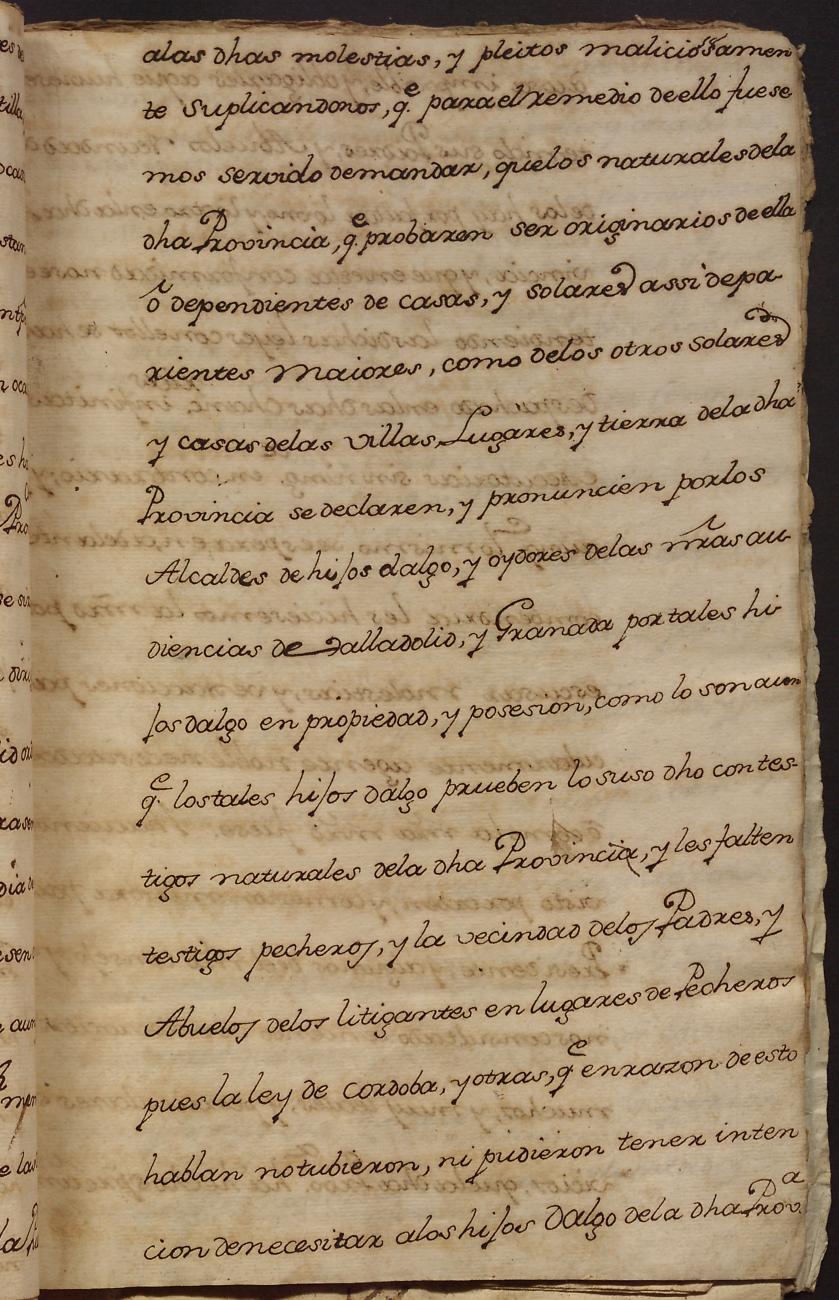 alas dhas molestias, y pleitos maliciosamen
te suplicandonos, q.e para el remedio de ello fuese
mos servido demandar, quelos naturales dela
dha Provincia, q.e probaren ser originarios de ella
ò dependientes de casas, y solares assi depa-
rientes Maiores, como delos otros solares
y casas delas villas, Lugares, y tierra dela dha
Provincia se declaren, y pronuncien porlos
Alcaldes de hijos dalgo, y oydores delas nr̃as au-
diencias de Valladolid, y Granada por tales hi-
jos dalgo en propiedad, y posesion, como lo son aun
q.e lostales hijos dalgo prueben lo suso dho con tes-
tigos naturales dela dha Provincia, y les falten
testigos pecheros, y la vecindad delos Padres, y
Abuelos delos litigantes en lugares de Pecheros
pues la ley de Cordoba, y otras, q.e en razon de esto
hablan notubieron, ni pudieron tener inten
cion denecesitar alos hijos Dalgo dela dha Prov.a